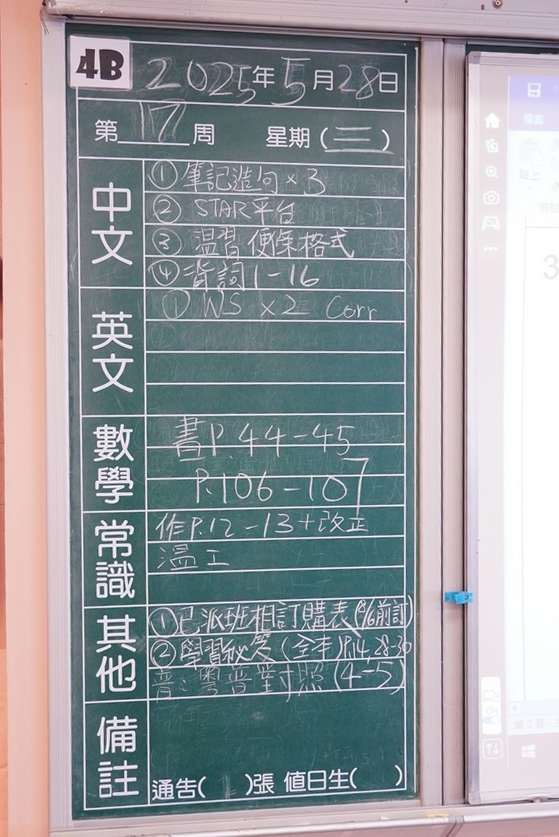 4B 2025年5月28日
第17周 星期(三)
中文
①筆記造句×3
②STAR平台
③溫習便條格式
④背詞1-16
英文
①WS ×2 Corr
數學
書P.44-45
P.106-107
常識
作P.12-13+改正
溫工
其他
①已派班相訂購表(8/6前訂)
②學習秘笈(全本)P.14,28-30
普:粵普對照(4-5)
備註
通告( )張 值日生( )
3